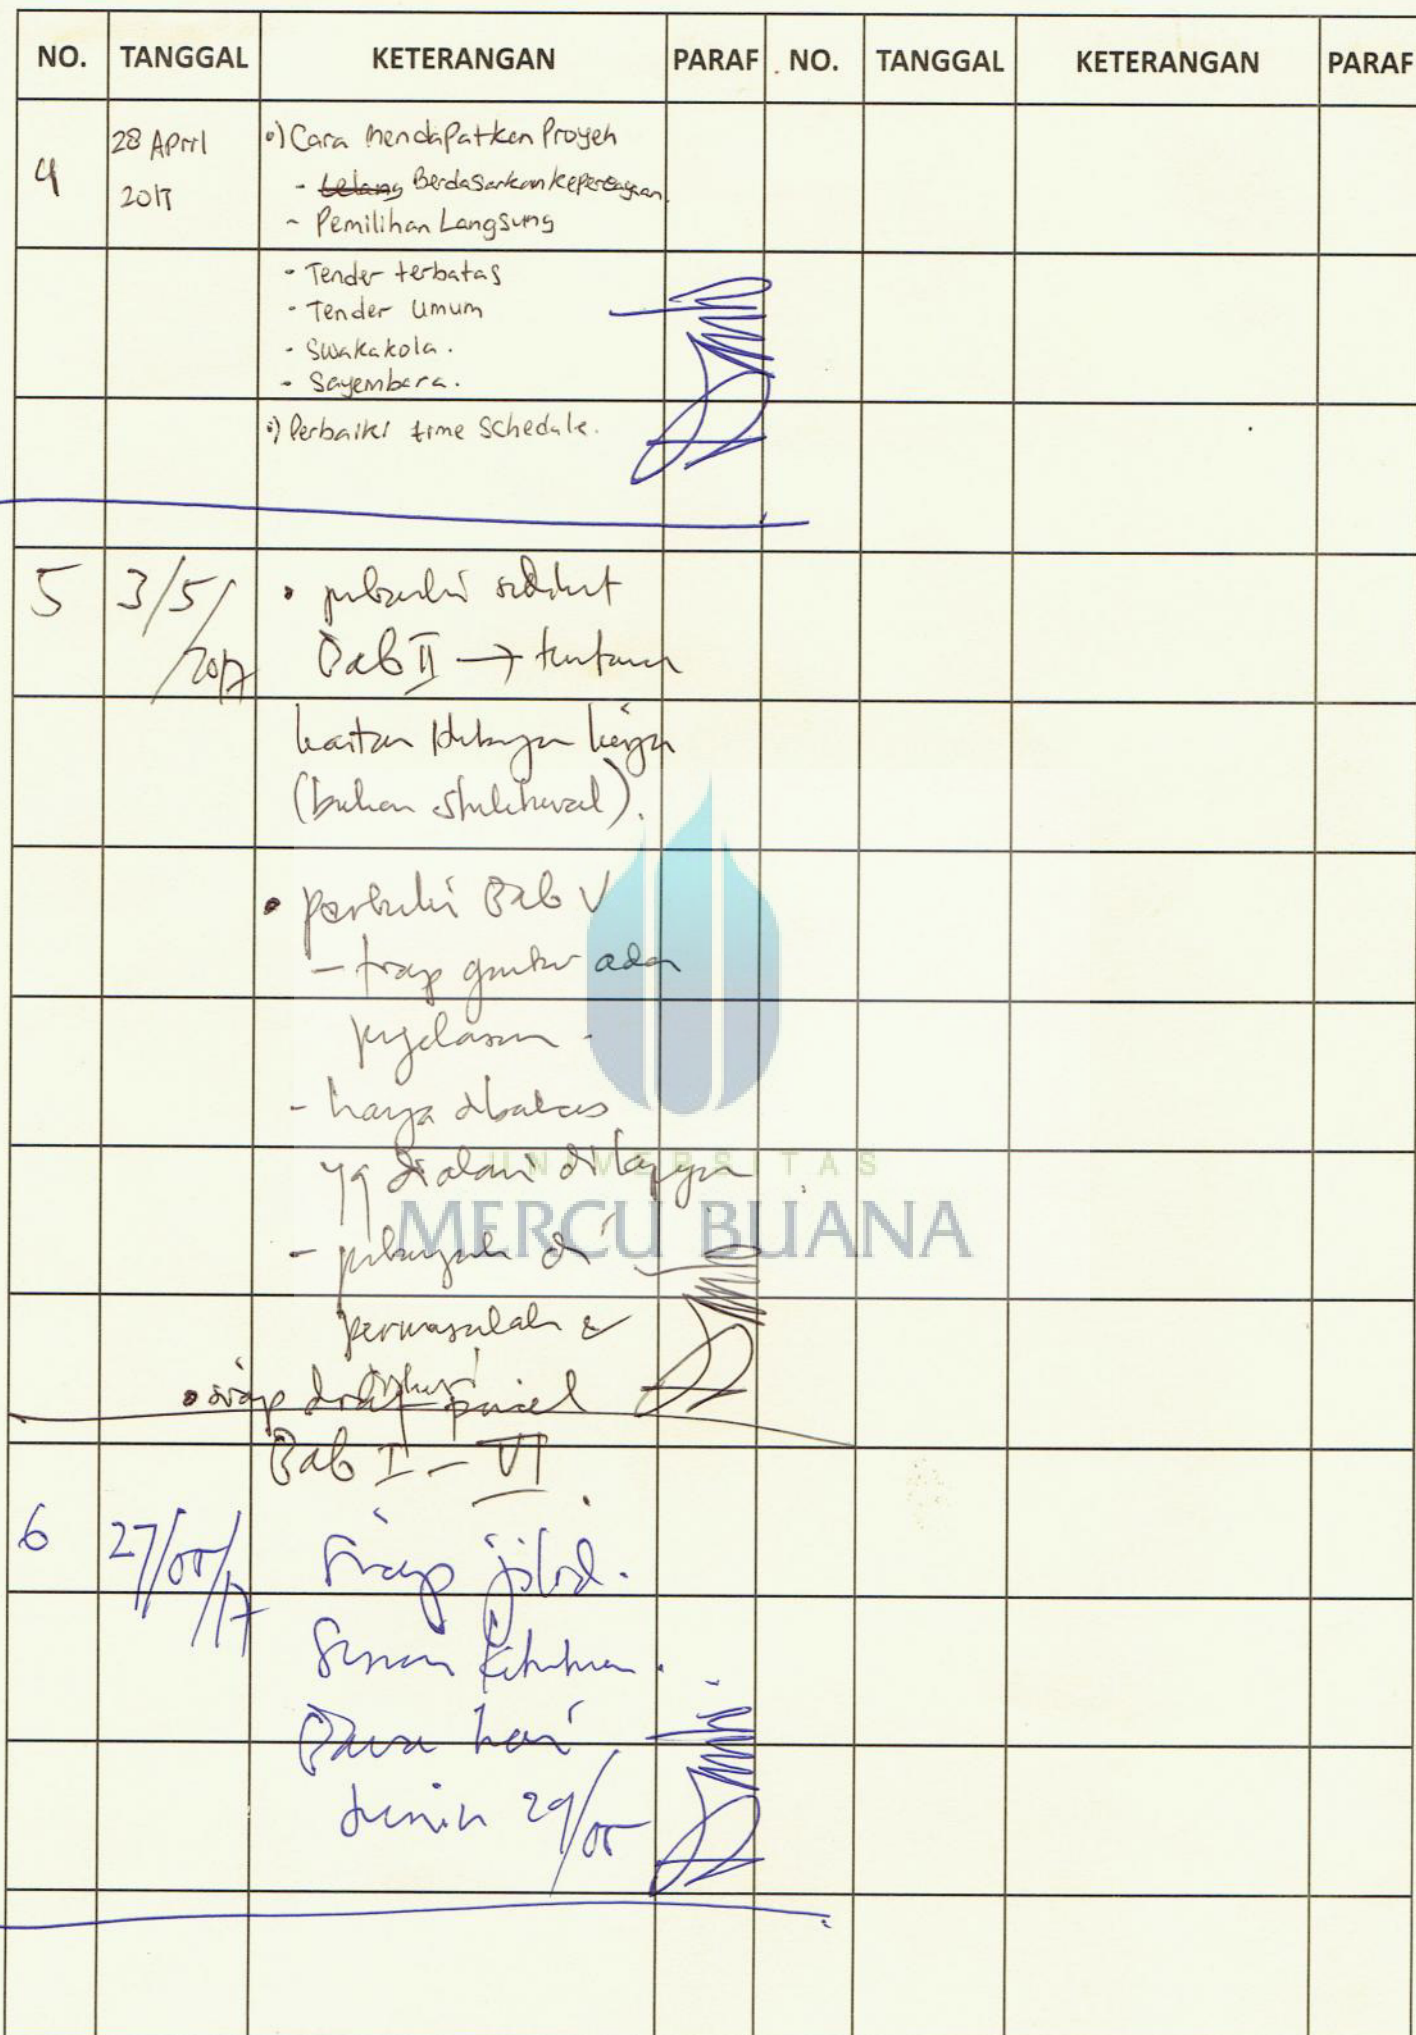 NO. TANGGAL KETERANGAN PARAF NO. TANGGAL KETERANGAN PARAF
4 28 April 2017
•) Cara Mendapatkan Proyek
- Lelang Berdasarkan kepercayaan
- Pemilihan Langsung
- Tender terbatas
- Tender Umum
- Swakakola.
- Sayembara.
•) Perbaiki time schedule.
5 3/5/2017
• perbaiki sedikit
Bab II →
kaitan kerja
(bukan struktural).
• perbaiki Bab V
- tiap gambar ada
penjelasan -
- hanya dibahas
yg dialami dilapangan
UNIVERSITAS
MERCU BUANA
-
permasalah &
diskusi
• siap draft
Bab I - VI
6 27/05/17
Siap jilid.
Bawa hari
Senin 29/05